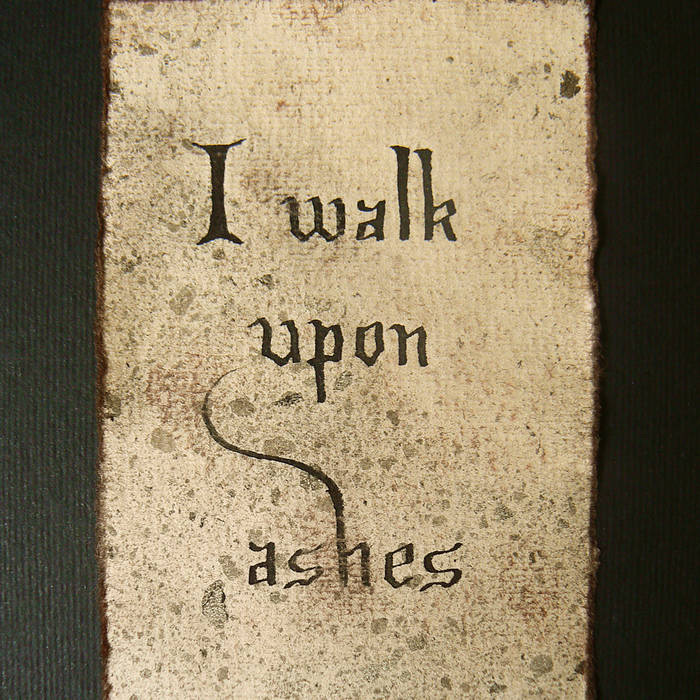 I walk
upon
ashes